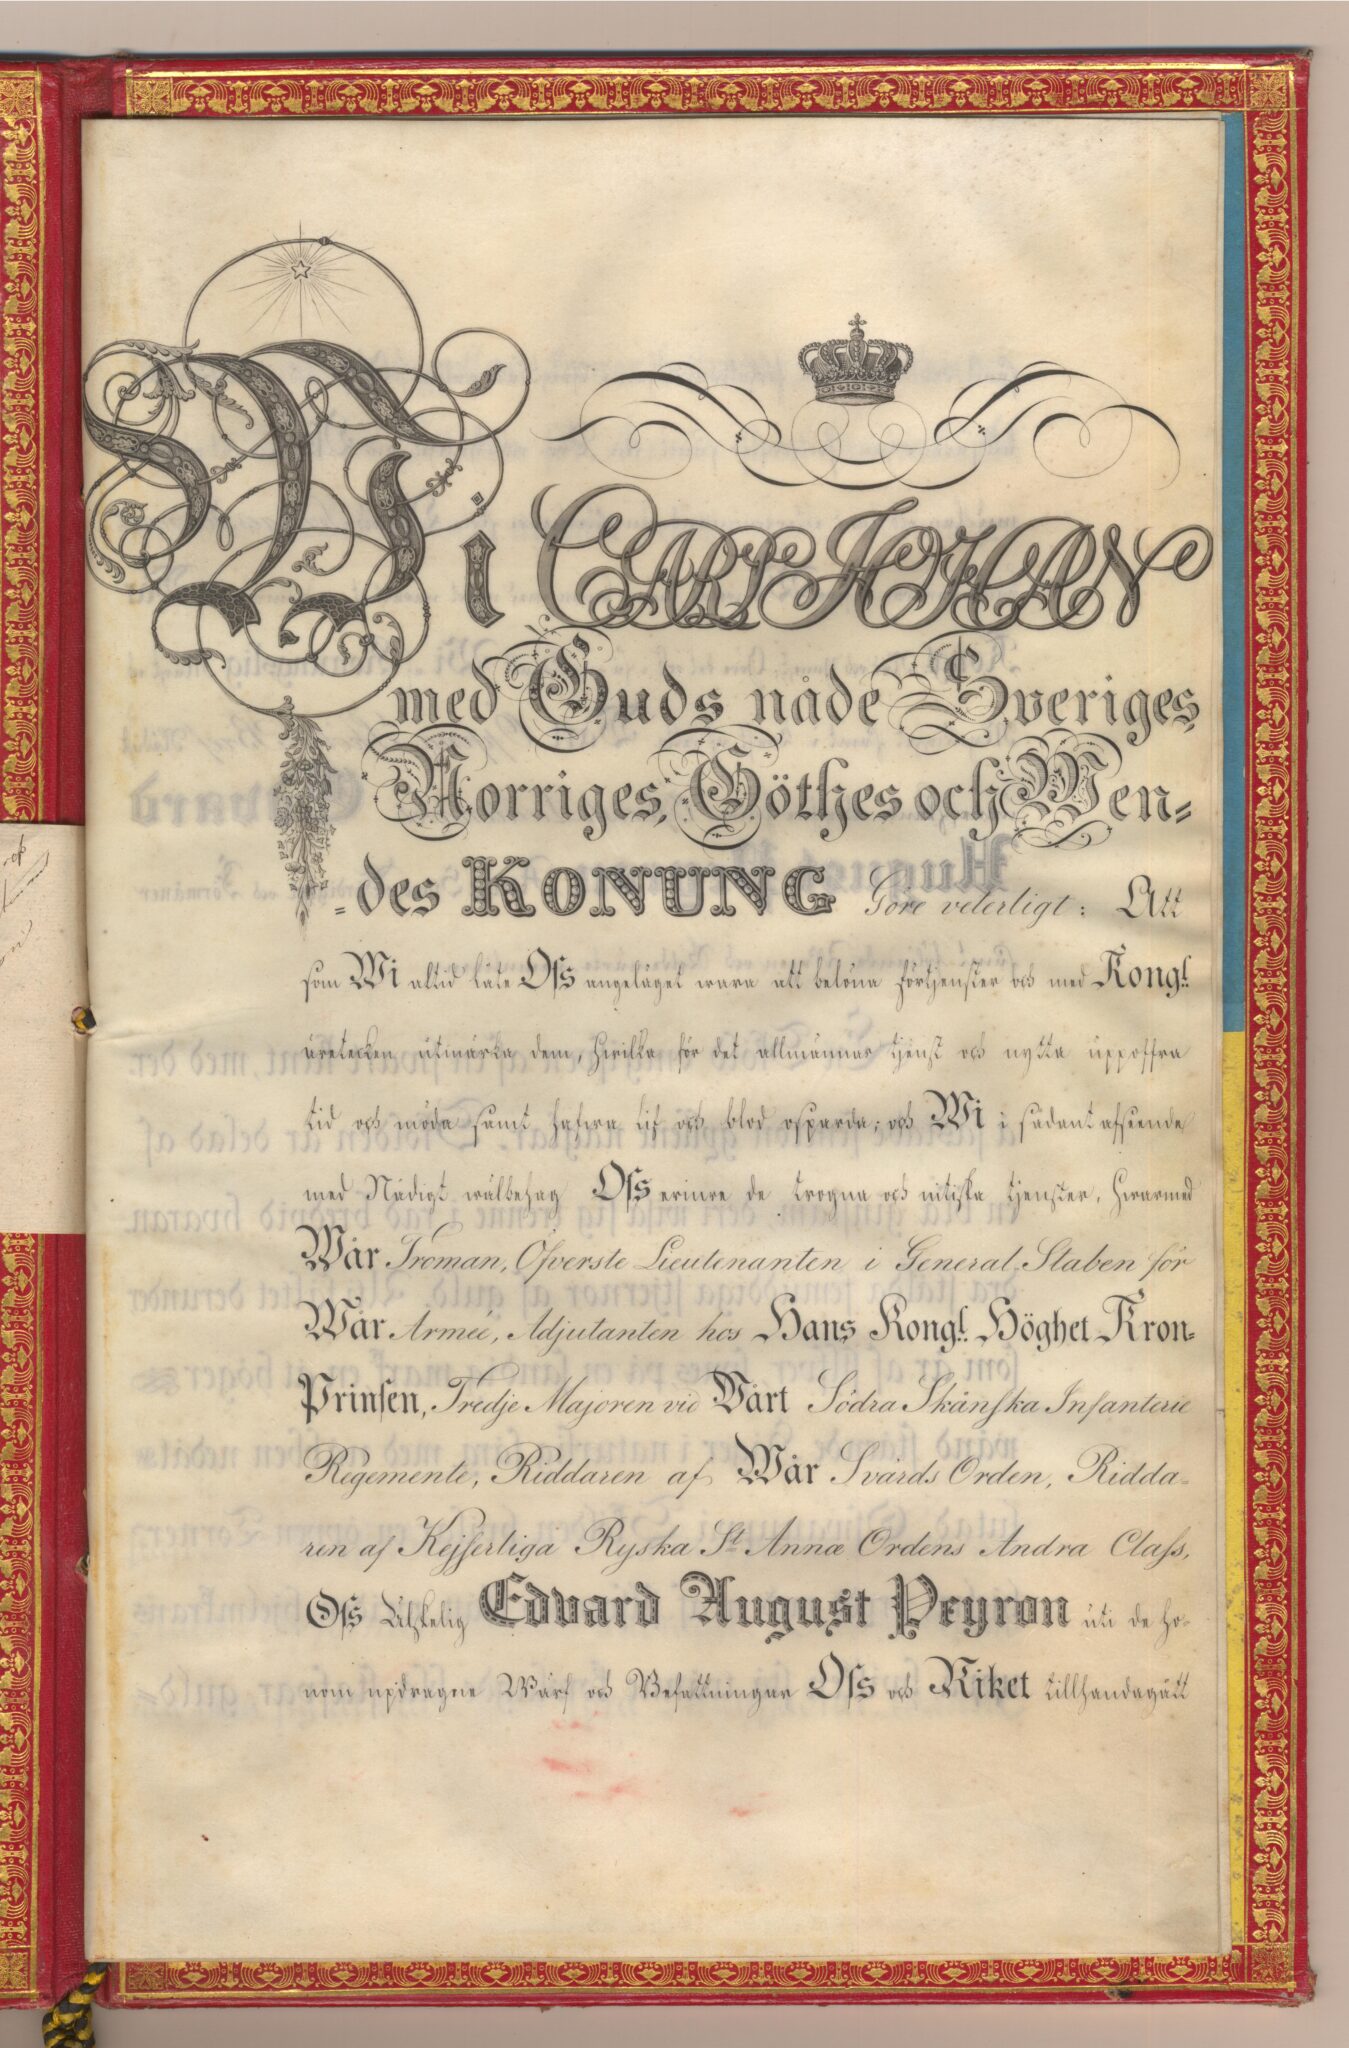 Wi CARL JOHAN
med Guds nåde Sveriges,
Norriges, Göthes och Wen-
=des KONUNG Göre veterligt: Att
som Wi altid låte Oſs angeläget wara att belöna förtjenster och med Kongl.
äretecken utmärka dem, hwilka för det allmännas tjenst och nytta uppoffra
tid och möda samt hafwa lif och blod osparda; och Wi i sådant afseende
med Nådigt wälbehag Oſs erinre de trogna och nitiska tjenster, hwarmed
Wår Troman, Öfverste Lieutenanten i General-Staben för
Wår Armée, Adjutanten hos Hans Kongl. Höghet Kron-
Prinſen, Tredje Majoren vid Vårt Södra Skånſka Infanterie
Regemente, Riddaren af Wår Svärds Orden, Ridda-
ren af Kejſerliga Ryska St. Annæ Ordens Andra Claſs,
Oſs Elskelig Edvard August Peyron uti de ho-
nom updragne Wärf och Befattningar Oſs och Riket tillhandagått